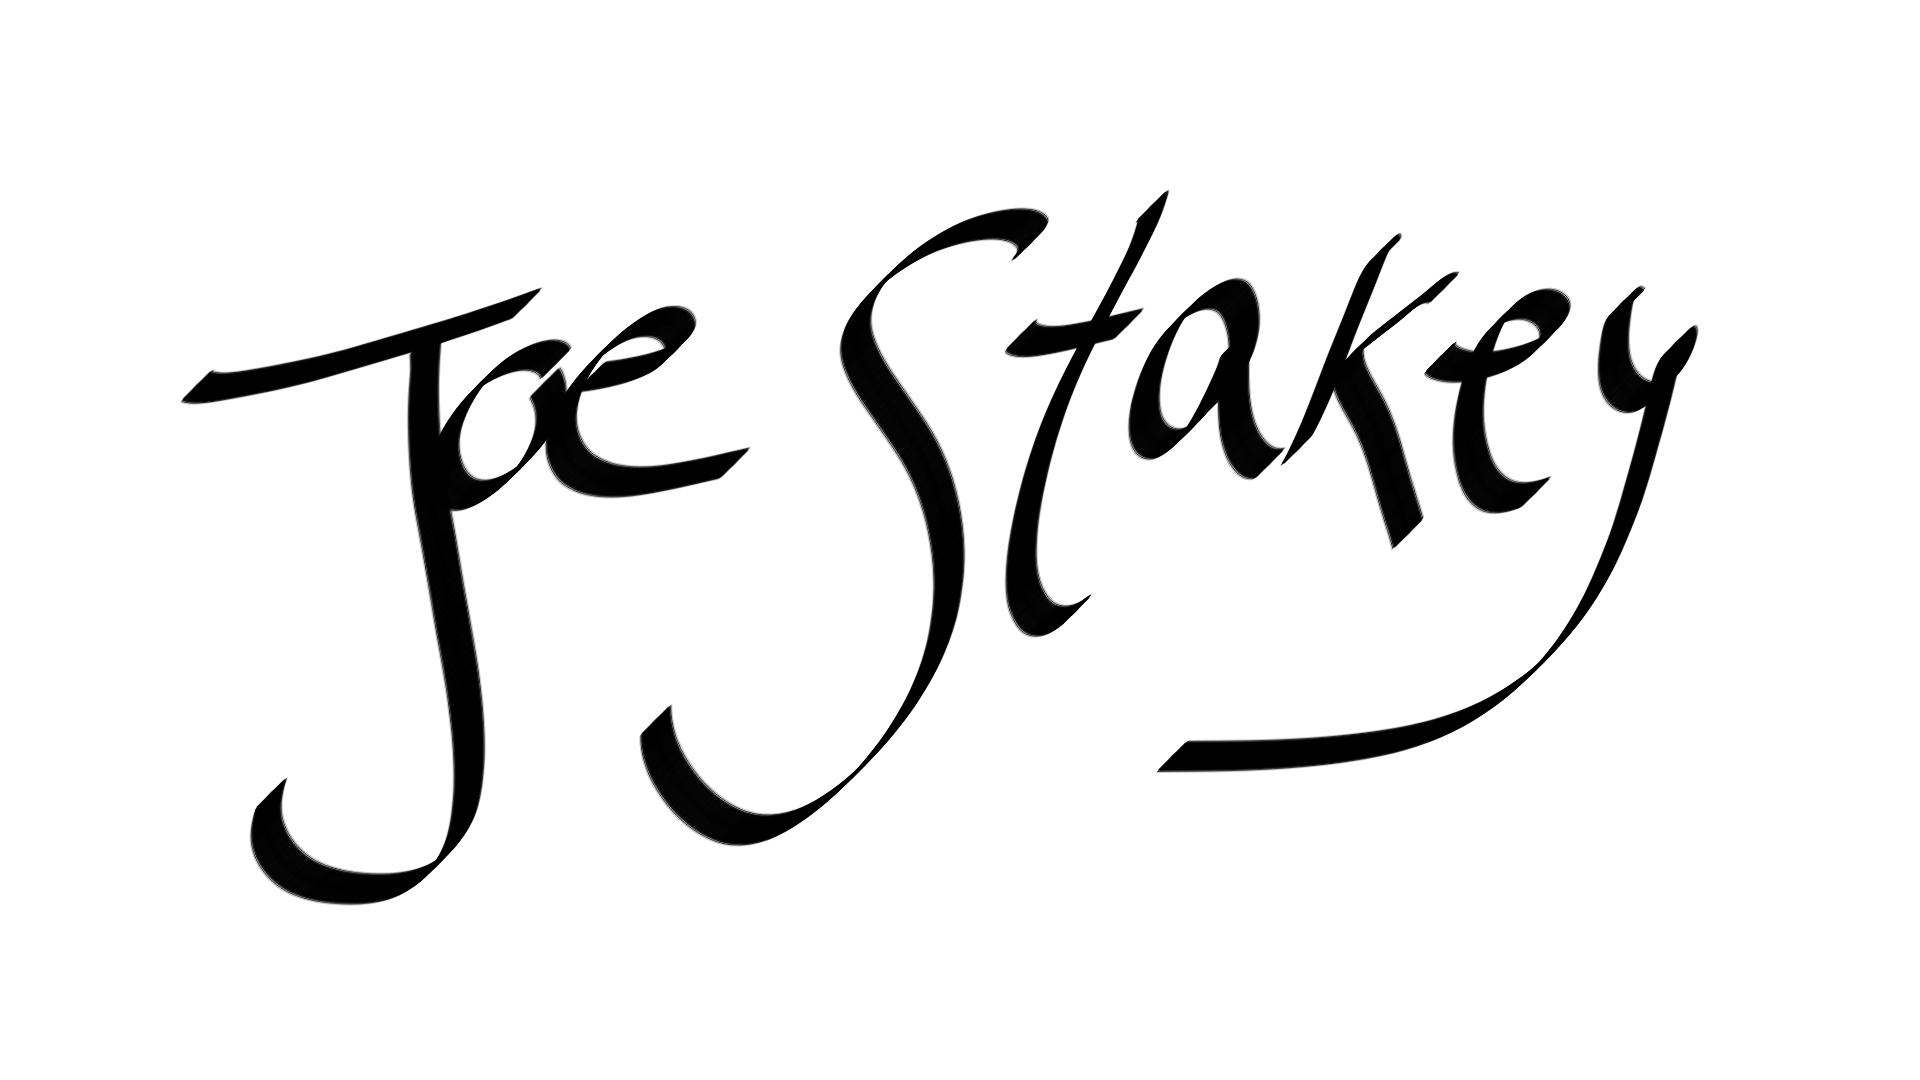 Joe Stakey